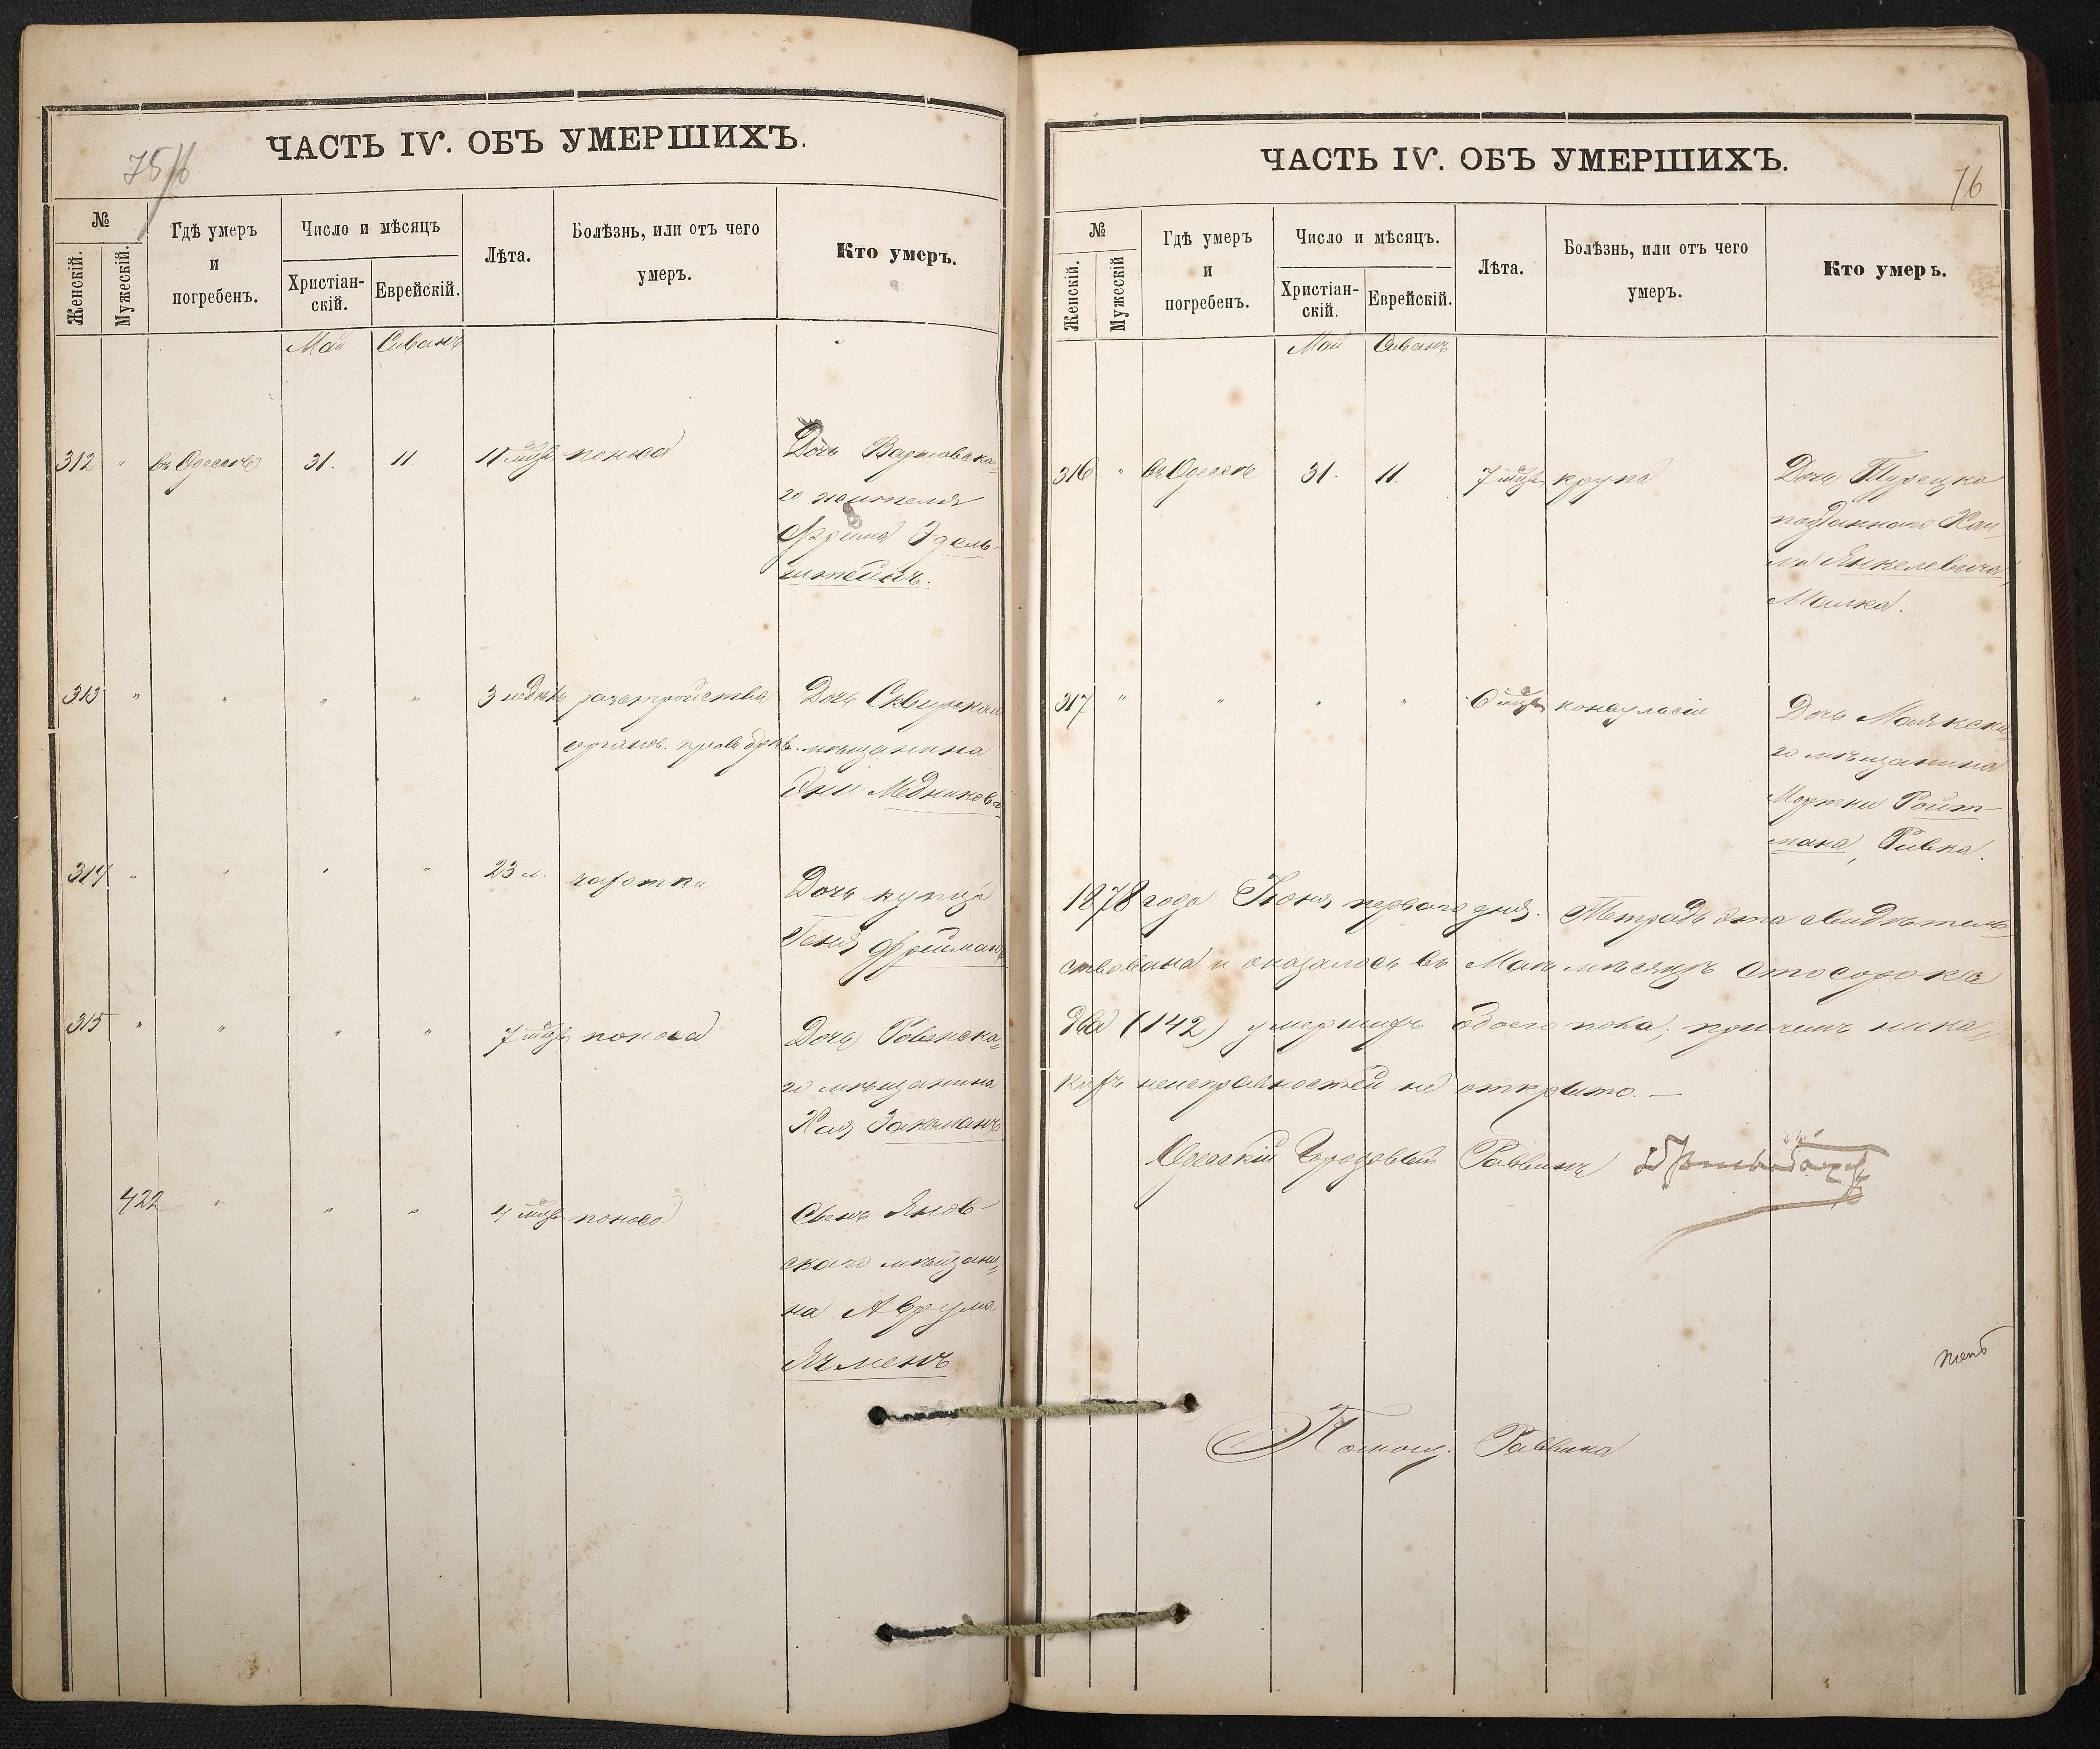 ЧАСТЬ IV. ОБЪ УМЕРШИХЪ.
75/б
№
Женскій.
Мужескій.
Гдѣ умеръ
и
погребенъ.
Число и мѣсяцъ
Христіан-
скій.
Еврейскій.
Лѣта.
Болѣзнь, или отъ чего
умеръ.
Кто умеръ.
Май Сиванъ
312 " въ Одессѣ 31. 11. 11 мѣся поноса Дочь Варшавска-
го жителя
Фрима Эдель-
штейнъ.
313 " " " " 3 недѣль разстройства Дочь Сквирскаго
органов. мѣщанина
Эни Медникова
314 " " " " 23 л. чахотки Дочь купца
Геня Фрейманъ
315 " " " " 7 мѣся поноса Дочь Ровенска-
го мѣщанина
Хая Закманъ
422 " " " 4 мѣся поноса Сынъ Янов-
скаго мѣщани-
на Аврума
Ячменъ
ЧАСТЬ IV. ОБЪ УМЕРШИХЪ.
76
№
Женскій.
Мужескій
Гдѣ умеръ
и
погребенъ.
Число и мѣсяцъ.
Христіан-
скій.
Еврейскій.
Лѣта.
Болѣзнь, или отъ чего
умеръ.
Кто умеръ.
Май Сиванъ
316 " въ Одессѣ 31. 11. 7 мѣся крупа Дочь Турецко
подданного Хаи
ма Янкелевича,
Малка.
317 " " " " 6 мѣся конвульсіи Дочь Маякска-
го мѣщанина
Мортки Ройт-
мана, Ривка.
1878 года Іюня перваго дня. Тетрадь эта свидѣтель-
ствована и оказалось въ Маѣ мѣсяцѣ сто сорокъ
два (142) умершихъ обоего пола, причемъ ника-
кихъ неисправностей не открыто. —
Одесскій Городовый Раввинъ
Помощ. Раввина